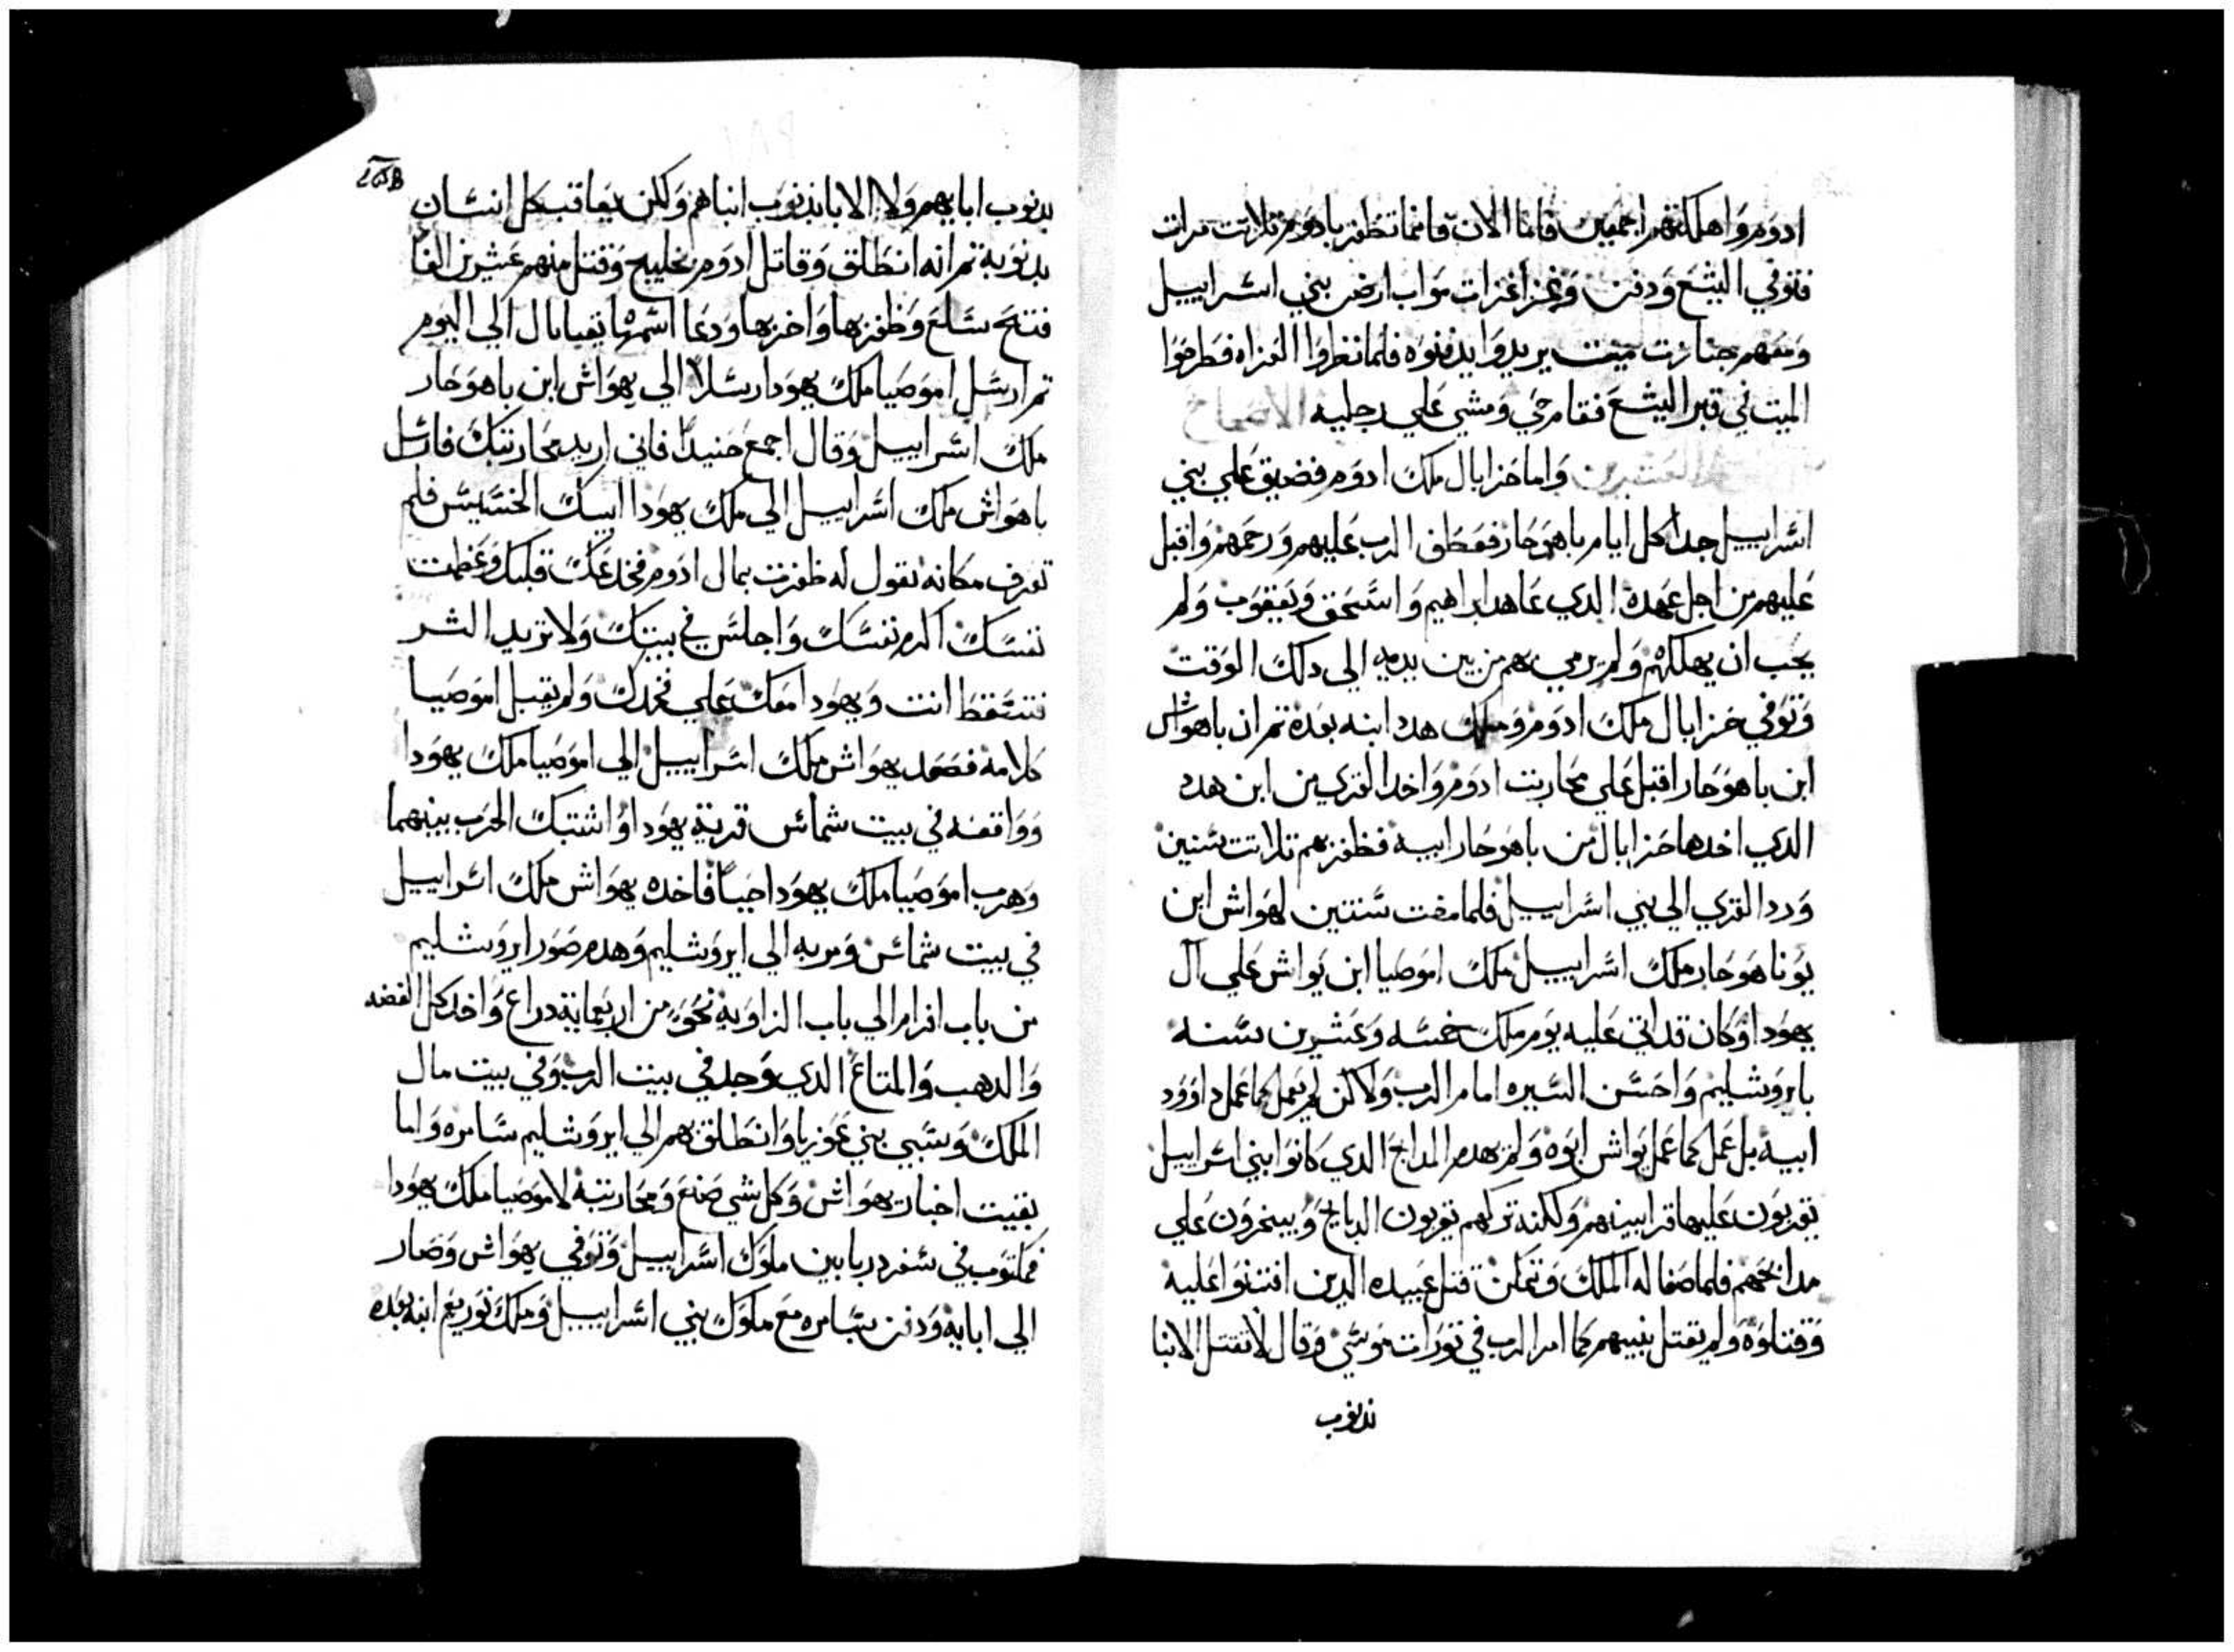 ادوم واهلكتهم اجمعين فاما الان فانما تظفر بادوم تلاتت مرات
فتوفي اليشع ودفن وغزا غزات مواب ارض بني اسراييل
ومعهم جنازت ميت يريدوا يدفنوه فلما نظروا الغزاه فطرحوا
الميت في قبر اليشع فقام حي ومشي علي رجليه الاصحاح
واما حزايال ملك ادوم فضيق علي بني
اسراييل جدا كل ايام ياهوحاز فعطف الرب عليهم ورحمهم واقبل
عليهم من اجل عهده الدي عاهد ابراهيم واسحق ويعقوب ولم
يحب ان يهلكهم ولم يرمي بهم من بين يديه الي دلك الوقت
وتوفي حزايال ملك ادوم وملك هدد ابنه بعده تم ان ياهواش
ابن ياهوحاز اقبل علي محاربت ادوم واخد القري من ابن هدد
الدي اخدها حزايال من ياهوحاز ابيه فظفر بهم تلاتت سنين
ورد القري الي بني اسراييل فلما مضت سنتين لهواش ابن
يوناهوحاز ملك اسراييل ملك اموصيا ابن يواش علي آل
يهودا وكان قد اتي عليه يوم ملك خمسه وعشرين سنه
بايروشليم واحسن السيره امام الرب ولاكن لم يعمل كما عمل داوود
ابيه بل عمل كما عمل يواش ابوه ولم يهدم المدابح الدي كانوا بني اسراييل
يقربون عليها قرابينهم ولكنه تركهم يقربون الدبايح ويبخرون علي
مدابحهم فلما صفا له الملك وتمكن قتل عبيده الدين افتنوا عليه
وقتلوه ولم يقتل بنيهم كما امر الرب في تورات موسي وقال لا تقتل الابنا
بدنوب
بدنوب ابايهم ولا الابا بدنوب ابناهم ولكن يعاقب كل انسان
بدنوبه تم انه انطلق وقاتل ادوم بخليج وقتل منهم عشرين الفا
فتح سلع وظفر بها واخربها ودعا اسمها تقيايال الي اليوم
تم ارسل اموصيا ملك يهودا رسلا الي يهواش ابن ياهوحاز
ملك اسراييل وقال اجمع جنيدك فاني اريد محاربتك فارسل
ياهواش ملك اسراييل الي ملك يهودا ايسك الخسيس فلم
تعرف مكانه تقول له ظفرت بمال ادوم فخدعك قلبك وعظمت
نفسك اكرم نفسك واجلس في بيتك ولا تريد الشر
فتسقط انت ويهودا معك علي فخدك ولم يقبل اموصيا
كلامه فصعد يهواش ملك اسراييل الي اموصيا ملك يهودا
وواقعه في بيت شمائس قرية يهودا واشتبك الحرب بينهما
وهرب اموصيا ملك يهودا حيا فاخده يهواش ملك اسراييل
في بيت شمائس ومر به الي ايروشليم وهدم صور ايروشليم
من باب افرام الي باب الزاويه نحو من اربعماية دراع واخد كل الفضه
والدهب والمتاع الدي وجد في بيت الرب وفي بيت مال
الملك وسبي بني عوزيا وانطلق بهم الي ايروشليم سامره واما
بقيت اخبار يهواش وكل شي صنع ومحاربته لاموصيا ملك يهودا
فمكتوب في سفر دبريامين ملوك اسراييل وتوفي يهواش وصار
الي ابايه ودفن بسامره مع ملوك بني اسراييل وملك توريعم ابنه بعده